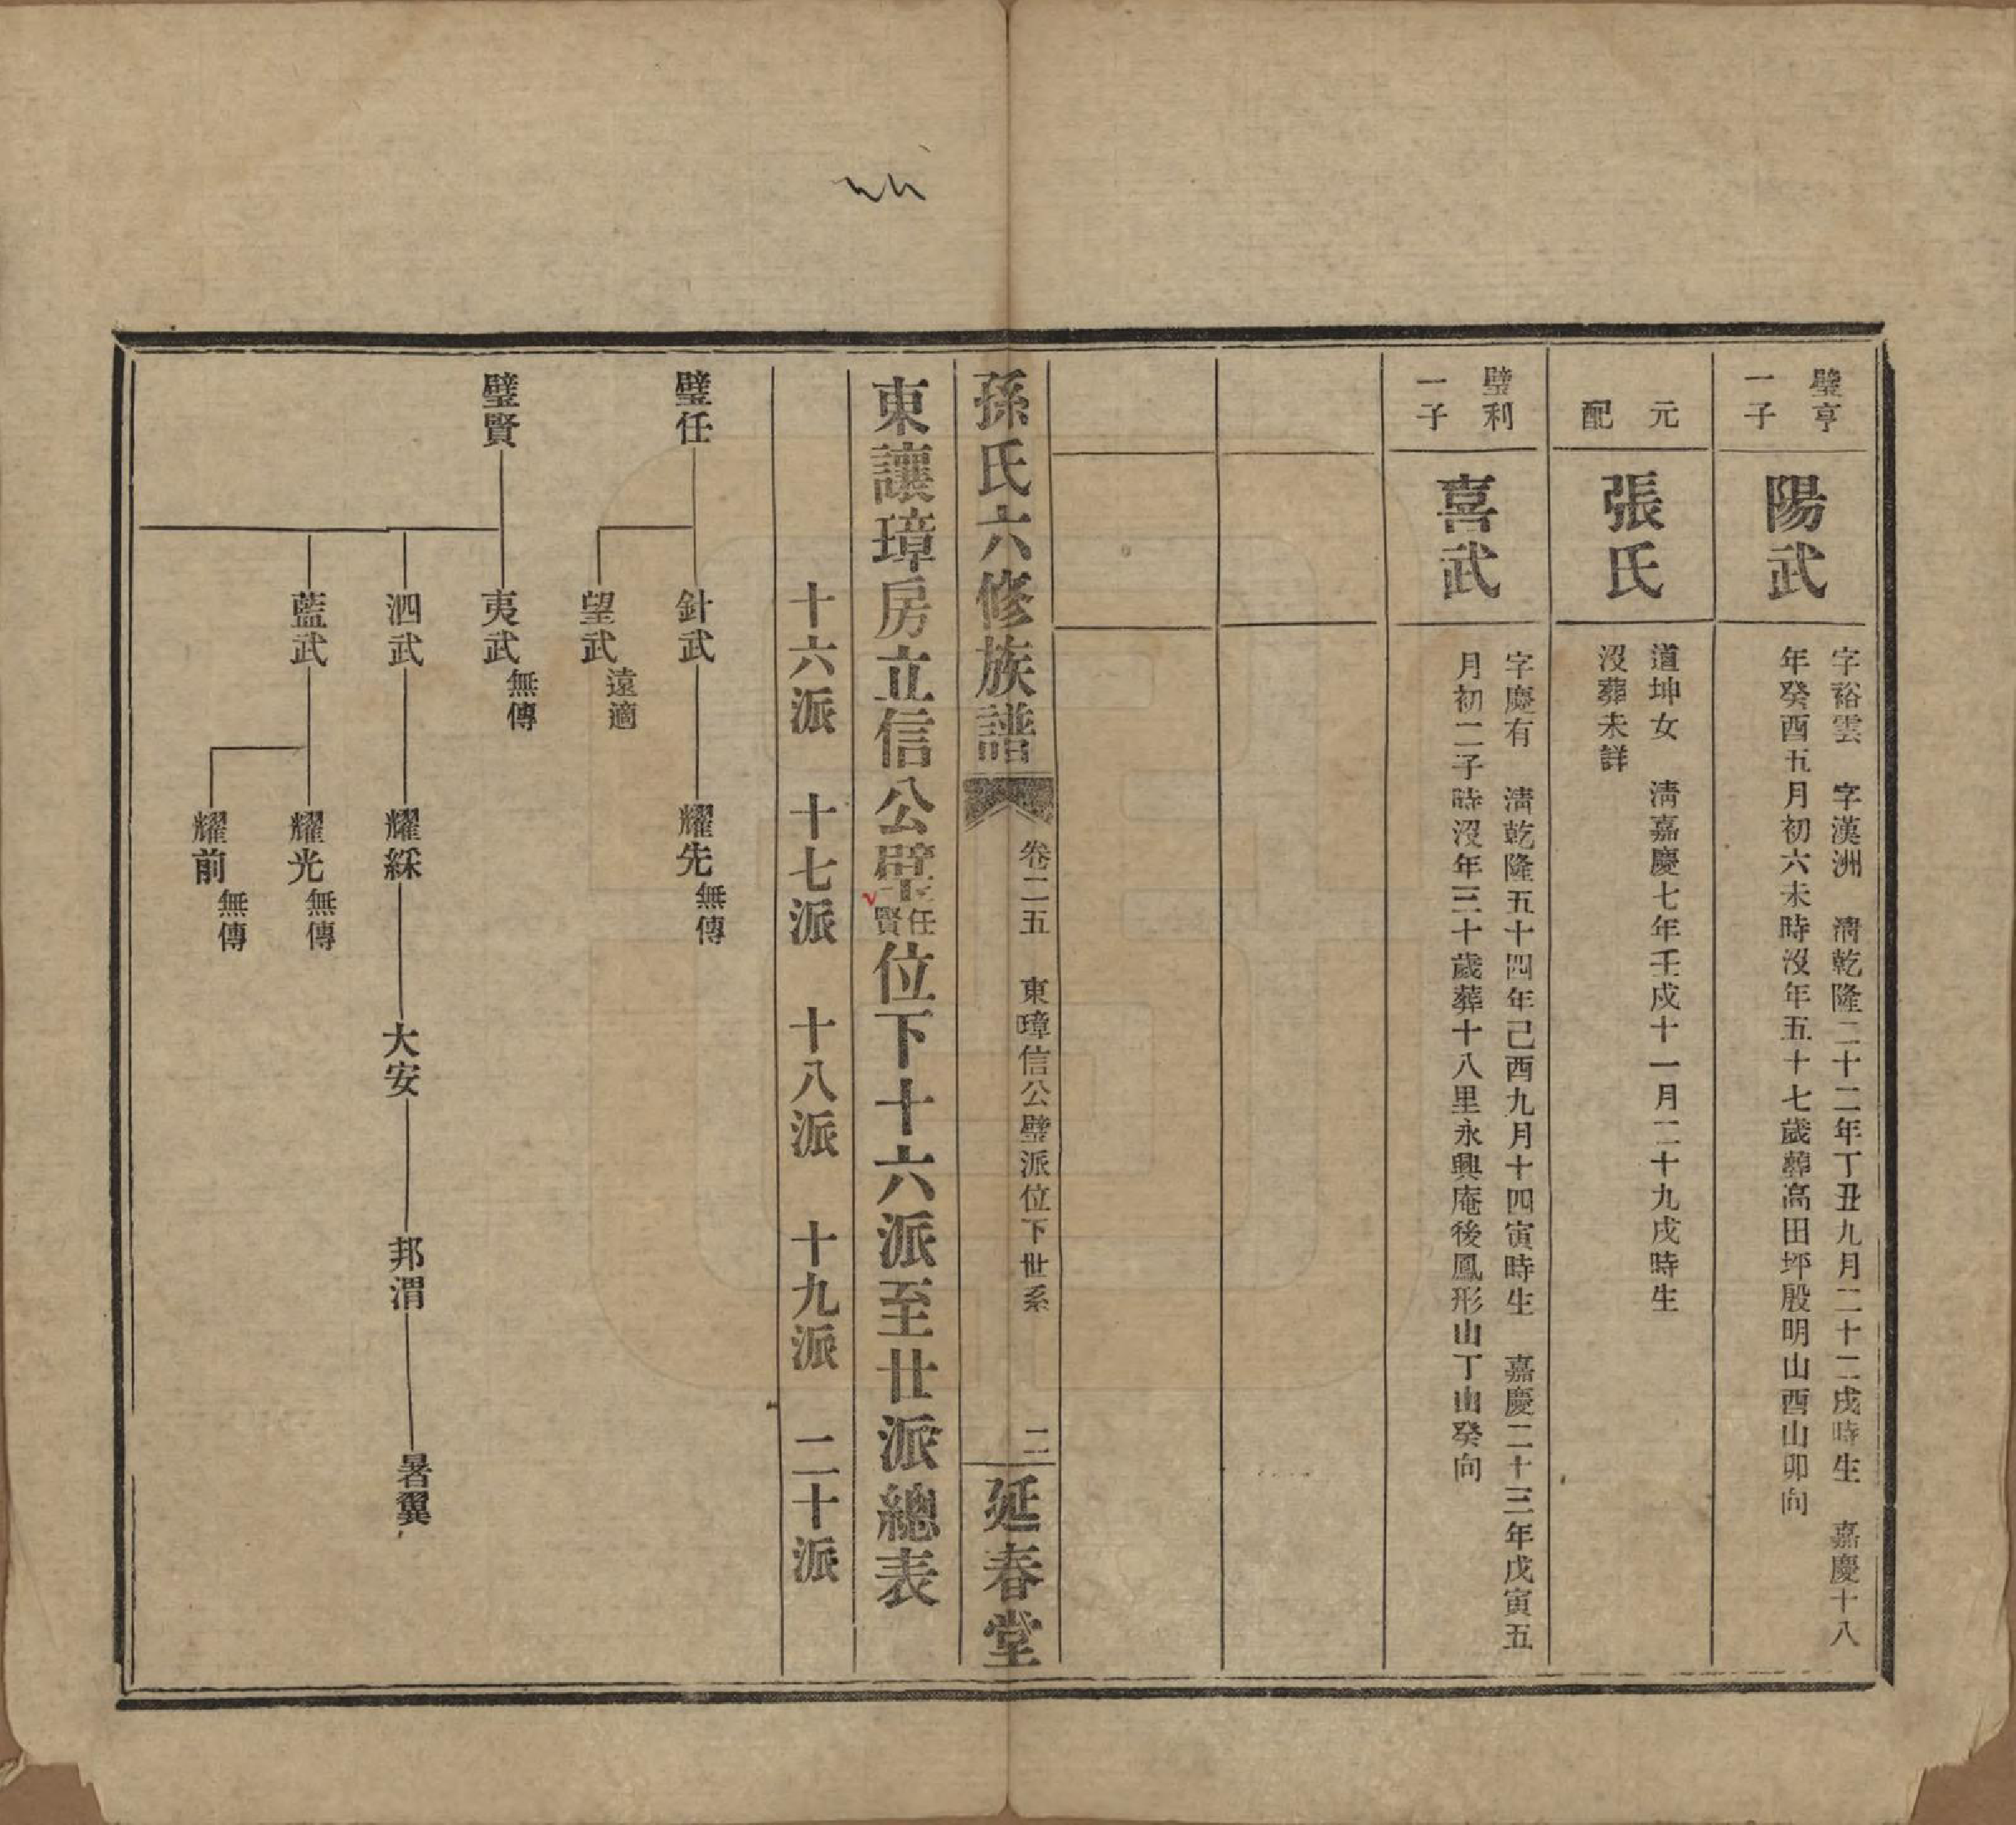 璧亨
一子
陽武
字裕雲　字漢洲　清乾隆二十二年丁丑九月二十二戌時生　嘉慶十八
年癸酉五月初六未時沒年五十七歲葬高田坪殷明山酉山卯向
元
配
張氏
道坤女　清嘉慶七年壬戌十一月二十九戌時生
沒葬未詳
璧利
一子
喜武
字慶有　清乾隆五十四年己酉九月十四寅時生　嘉慶二十三年戊寅五
月初二子時沒年三十歲葬十八里永興庵後鳳形山丁山癸向
孫氏六修族譜
卷二五　東璋信公璧派位下世系　二
延春堂
東讓璋房立信公璧任賢位下十六派至廿派總表
十六派　十七派　十八派　十九派　二十派
璧任
針武
耀先 無傳
望武 遠適
璧賢
夷武 無傳
泗武
耀綵
大安
邦渭
暑翼
藍武
耀光 無傳
耀前 無傳